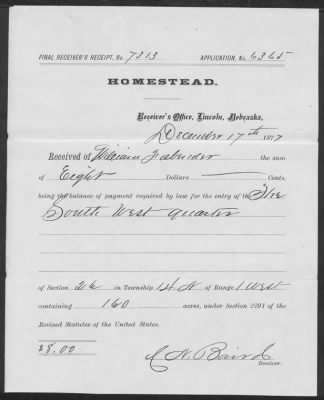 FINAL RECEIVER'S RECEIPT, No. 7213 APPLICATION, No. 6365
HOMESTEAD.
Receiver's Office, Lincoln, Nebraska,
December 17th 1877
Received of William the sum
of Eight Dollars — Cents,
being the balance of payment required by law for the entry of the
South West quarter
of Section 26 in Township 14 N of Range 1 West
containing 160 acres, under Section 2291 of the
Revised Statutes of the United States.
$8.00
C. N. Baird
Receiver.